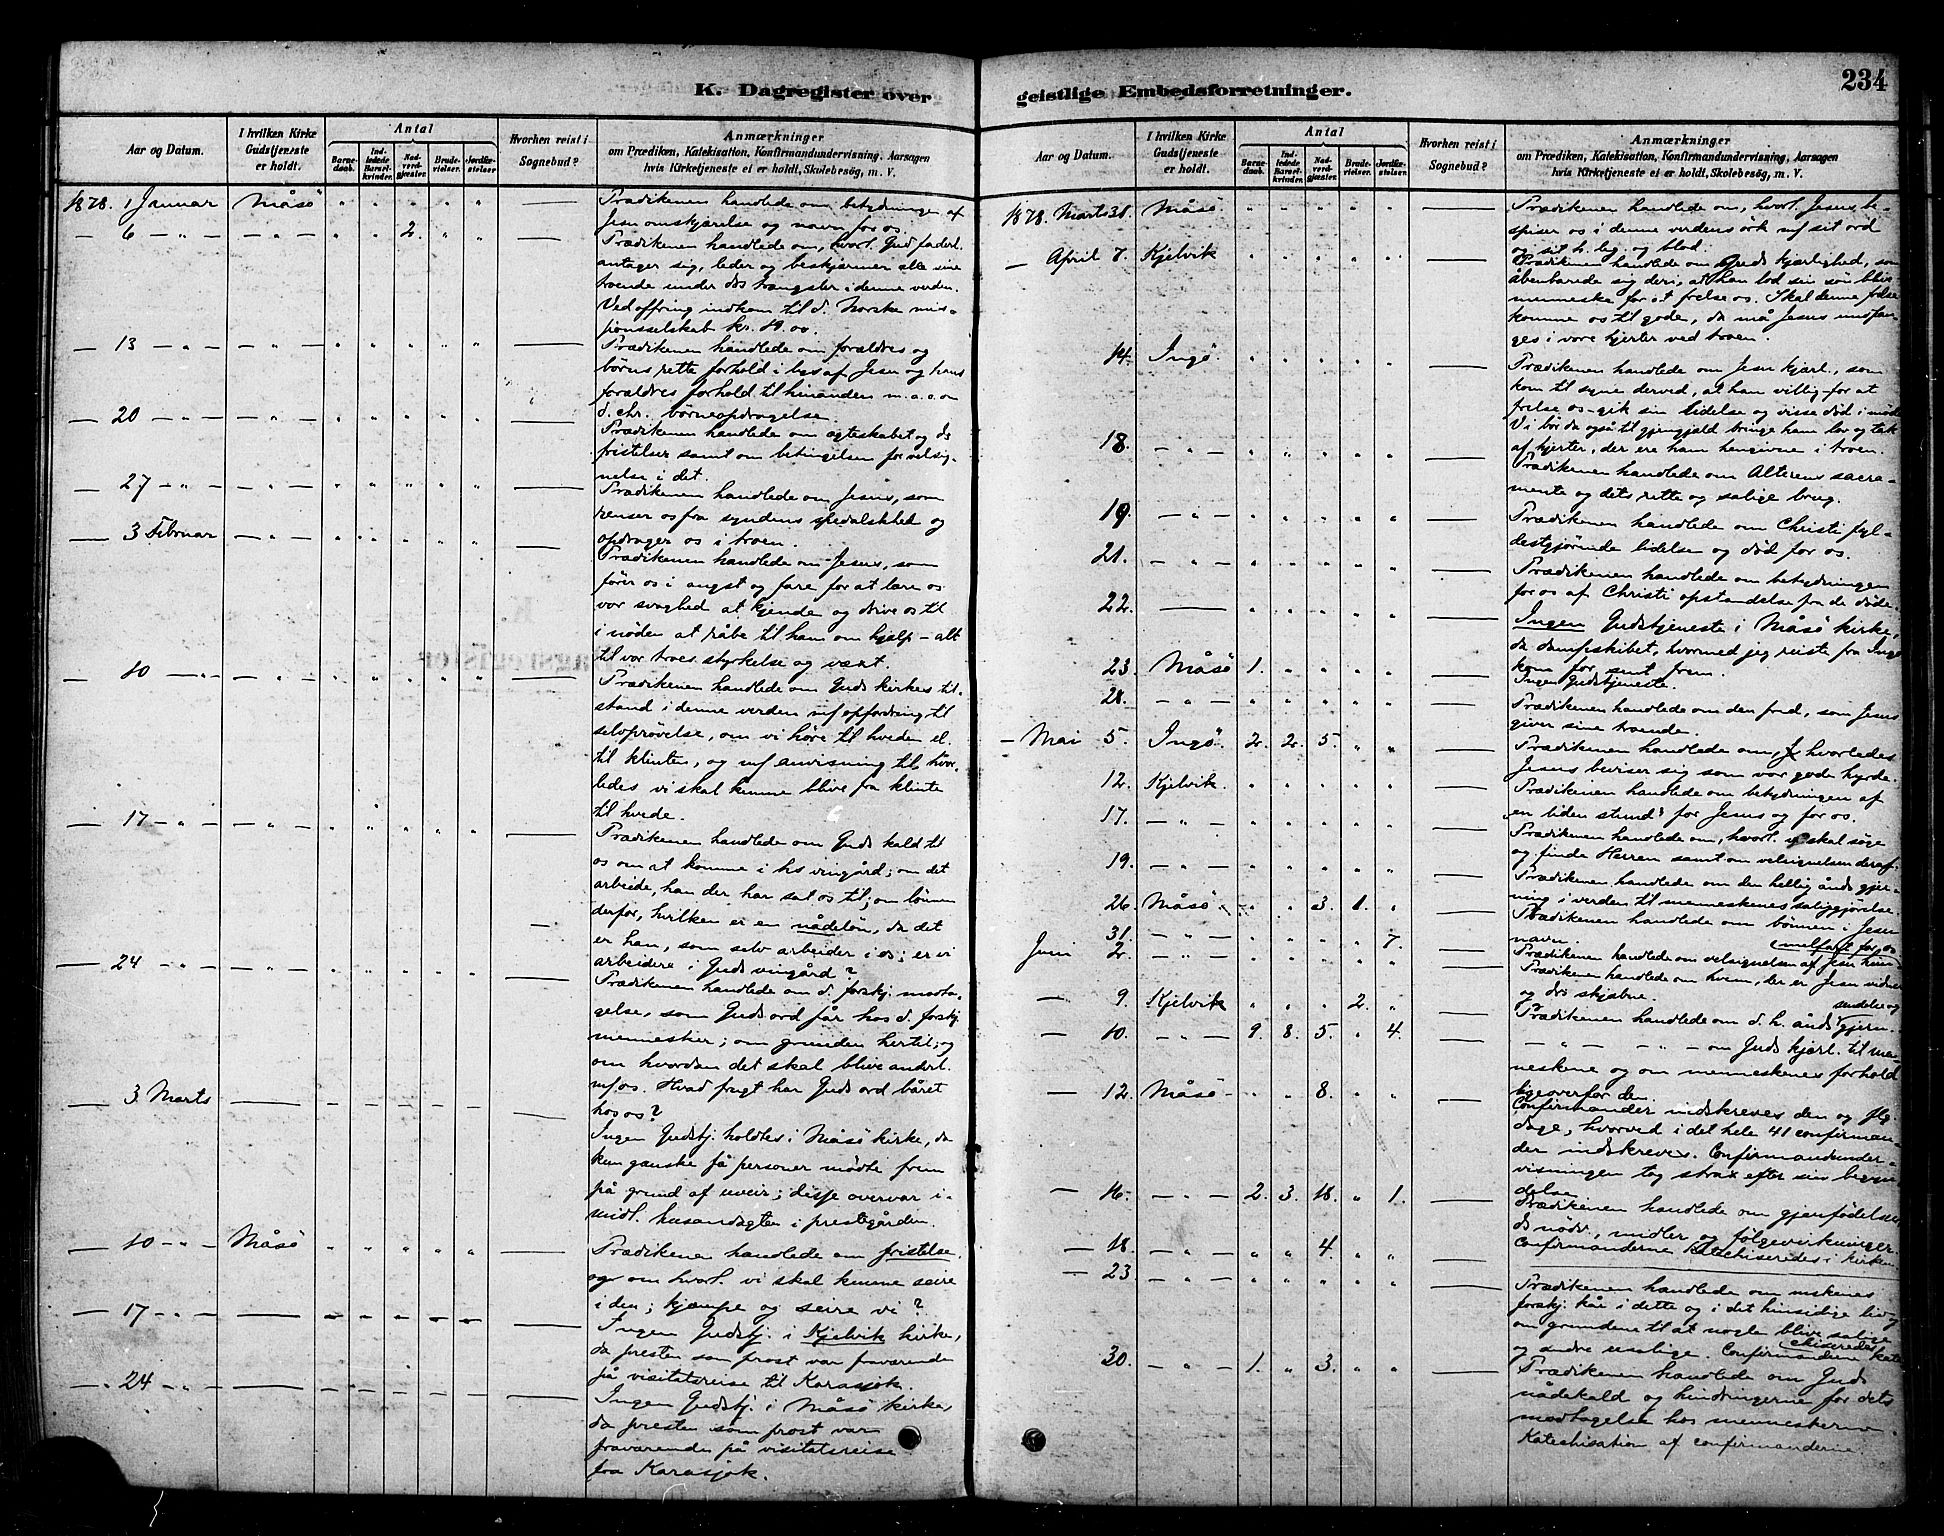 K. Dagregister over
Aar og Datum.
I hvilken Kirke
Gudstjeneste
er holdt.
Antal
Barne-
daab.
Ind-
ledede
Barsel-
kvinder.
Nad-
verd-
gjæster.
Brude-
vielser.
Jordfæ-
stelser
Hvorhen reist i
Sognebud?
Anmærkninger
om Prædiken, Katekisation, Konfirmandundervisning, Aarsagen
hvis Kirketjeneste ei er holdt, Skolebesøg, m. V.
1878. 1 Januar Måsö " " " " " Prædikenen handlede om betydningen af
Jesu omskjærelse og navn for os.
— 6 — " — — " — " " 2. " " — Prædikenen handlede om, hvorl. Gud fader
antager sig, leder og beskjærmer alle sine
troende under ds trængsler i denne verden.
Ved offring indkom til d. Norske mis-
jonsselskab kr. 19.00.
— 13 — " — — " — " " " " " — Prædikenen handlede om forældres og
börns rette forhold i lys af Jesu og hans
forældres forhold til hinanden m. a. o. om
d. chr. börneopdragelse.
— 20 — " — — " — " " " " " — Prædikenen handlede om ægteskabet og ds
fristelser samt om betingelsen for velsig-
nelse i det.
— 27 — " — — " — " " " " " — Prædikenen handlede om Jesus, som
renser os fra syndens spedalskhed og
opdrager os i troen.
— 3 Februar — " — " " " " " — Prædikenen handlede om Jesus, som
förer os i angst og fare for at lære os
vor svaghed at kjende og drive os til
i nöden at råbe til ham om hjælp – alt
til vor troes styrkelse og vækst.
— 10 — " — — " — " " " " " — Prædikenen handlede om Guds kirkes til-
stand i denne verden mf opfordring til
selvprøvelse, om vi höre til hveden el.
til klinten, og mf anvisning til, hvor-
ledes vi skal kunne blive fra klinte
til hvede.
— 17 — " — — " — " " " " " — Prædikenen handlede om Guds kald til
os om at komme i hs vingård; om det
arbeide, han der har sat os til; om lönnen
derfor, hvilken er en nådelön, da det
er han, som selv arbeider i os; er vi
arbeidere i Guds vingård?
— 24 — " — — " — " " " " " — Prædikenen handlede om d. forskj. modta-
gelse, som Guds ord får hos d. forskj.
mennesker; om grunden hertil; og
om hvordan det skal blive anderl.
mf os. Hvad frugt har Guds ord båret
hos os?
— 3 Marts — — — — — — — Ingen Gudstj. holdtes i Måsö kirke, da
kun ganske få personer mödte frem
på grund af uveir; disse overvar i-
midl. husandagten i prestegården.
— 10 — " — Måsö " " " " " — Prædikenen handlede om fristelse
og om hvorl. vi skal kunne seire
i den; kjæmpe og seire vi?
— 17 — " — — — — — — — — Ingen Gudstj. i Kjelvik kirke,
da presten som prost var fraværende
på visitatsreise til Karasjok.
— 24 — " — — — — — — — — Ingen Gudstj. i Måsö kirke
da presten som prost var
fraværende på visitatsreise
fra Karasjok.
geistlige Embedsforretninger.
234
Aar og Datum.
I hvilken Kirke
Gudstjeneste
er holdt.
Antal
Barne-
daab.
Ind-
ledede
Barsel-
kvinder.
Nad-
verd-
gjæster.
Brude-
vielser.
Jordfæ-
stelser.
Hvorhen reist i
Sognebud?
Anmærkninger
om Prædiken, Katekisation, Konfirmandundervisning, Aarsagen
hvis Kirketjeneste ei er holdt, Skolebesøg, m. V.
1878. Marts 31. Måsö. " " " " " — Prædikenen handlede om, hvorl. Jesus be-
spiser os i denne verdens örk mf sit ord
og sit h. leg. og blod.
— April 7. Kjelvik " " " " " — Prædikenen handlede om Guds kjærlighed, som
åbenbarede sig deri, at han lod sin sön blive
menneske for at frelse os. Skal denne frelse
komme os til gode, da må Jesus undfan-
ges i vore hjerter ved troen.
14. Ingö. " " " " " — Prædikenen handlede om Jesu kjærl., som
kom til syne derved, at han villig for at
frelse os gik sin lidelse og visse död i möde
Vi bör da også til gjengjæld bringe ham lov og tak
af hjerter, der ere ham hengivne i troen.
18. — " — " " " " " — Prædikenen handlede om Alterens sacra-
mente og dets rette og salige brug.
19. — " — " " " " " — Prædikenen handlede om Christi fyl-
destgjørende lidelse og död for os.
21. — " — " " " " " — Prædikenen handlede om betydningen
for os af Christi opstandelse fra de døde.
22. — " " " " " — Ingen Gudstjeneste i Måsö kirke,
da dampskibet, hvormed jeg reiste fra Ingö
kom for sent frem.
23. Måsö 1. " " " " — Ingen Gudstjeneste.
28. — " — " " " " " — Prædikenen handlede om den fred, som Jesus
giver sine troende.
— Mai 5. Ingö 2. 2. 5. " " — Prædikenen handlede om, hvorledes
Jesus beviser sig som vor gode hyrde.
12. Kjelvik. " " " " " — Prædikenen handlede om betydningen af
"en liden stund" for Jesus og for os.
17. — " — " " " " " — Prædikenen handlede om, hvorl. vi skal söge
og finde Herren samt om velsignelsen deraf.
19. — " — " " " " " — Prædikenen handlede om den hellig ånds gjer-
ning i verden til menneskenes saliggjørelse.
26. Måsö " " 3. 1. " — Prædikenen handlede om bönnen i Jesu
navn.
31. — " — " " " " 7. — Prædikenen handlede om velsignelsen af Jesu him-
melfart for os
Juni 2. — " — " " " " " — Prædikenen handlede om hvem, der er Jesu vidner
og ds skjæbne.
— 9. Kjelvik " " " 2. " — Prædikenen handlede om d. h. ånds sendelse og gjern.
— 10. — " — 9. 8. 5. " 4. — — " — " — om Guds kjærl. til men-
neskene og om menneskenes forhold
ligeoverfor den.
— 12. Måsö — " 8. " " — Confirmander indskreves den og flg.
dage, hvorved i det hele 41 confirman-
der indskreves. Confirmandunder-
visningen tog strax efter sin begyn-
delse.
— 16. — " — 2. 3. 18. " 1. — Prædikenen handlede om gjenfödelsen
ds nödv., midler og fölgevirkninger.
— 18. — " — " " 4. " " — Confirmanderne katechiseredes i kirken.
— 23 — " — " " " " " — Prædikenen handlede om mskenes
forskj. kår i dette og i det hinsidige liv og
om grundene til at nogle blive salige
og andre usalige. Confirmanderne kate-
chiseredes
30. — " — 1. " 3. " " — Prædikenen handlede om Guds
nådekald og hindringerne for dets
modtagelse hos menneskerne.
Katechisation af confirmanderne.